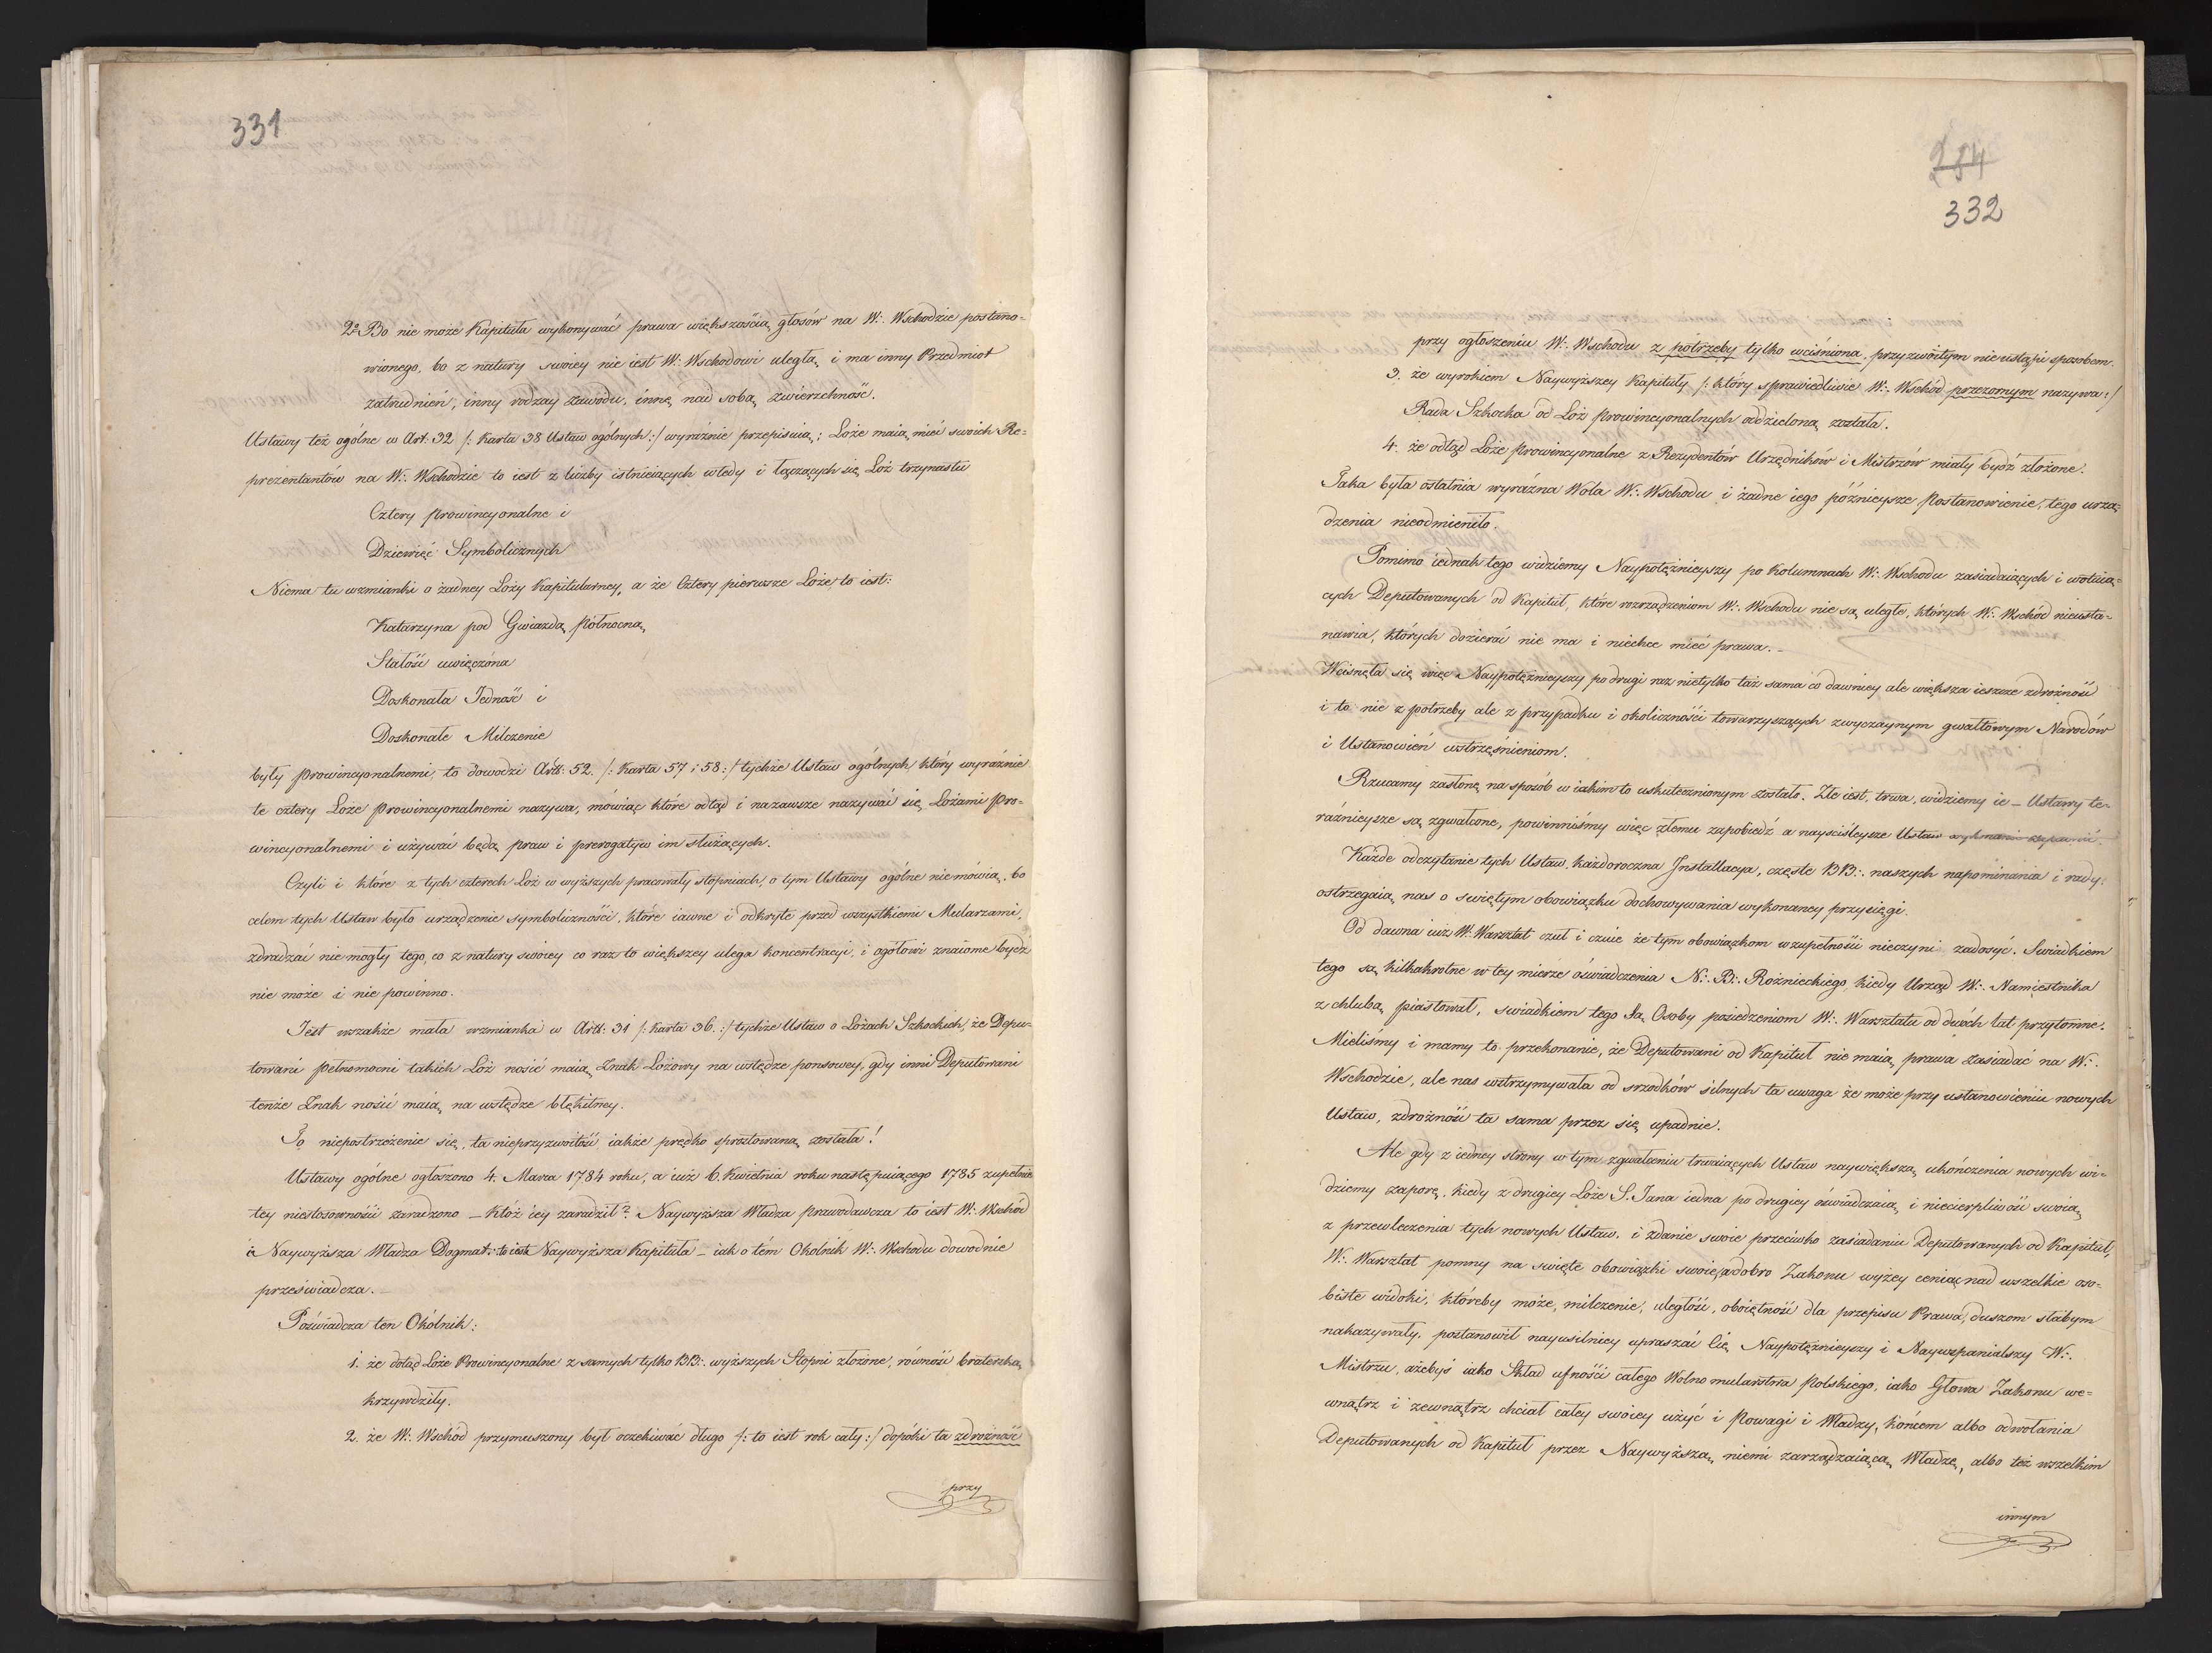 331
2º Bo nie może Kapituła wykonywać prawa większością głosów na W∴ Wschodzie postano-
wionego, bo z natury swoiey nie iest W∴ Wschodowi uległą, i ma inny Przedmiot
zatrudnień, inny rodzay zawodu, inną nad sobą zwierzchność.
Ustawy też ogólne w Art: 32 /: Karta 38 Ustaw ogólnych :/ wyraźnie przepisuią; Loże maią mieć swoich Re-
prezentantów na W∴ Wschodzie to iest z liczby istnieiących wtedy i łączących się Lóż trzynastu
Cztery Prowincyonalne i
Dziewięć Symbolicznych
Niema tu wzmianki o żadney Loży Kapitularney, a że Cztery pierwsze Loże, to iest:
Katarzyna pod Gwiazdą Północną,
Stałość uwięczona
Doskonała Jedność i
Doskonałe Milczenie
były Prowincyonalnemi, to dowodzi Artt: 52. /: Karta 57 i 58 :/ tychże Ustaw ogólnych który wyraźnie
te cztery Loże Prowincyonalnemi nazywa, mówiąc które odtąd i nazawsze nazywać się Lożami Pro-
wincyonalnemi i używać będą praw i prerogatyw im służących.
Czyli i które z tych czterech Lóż w wyższych pracowały stopniach, o tym Ustawy ogólne nie mówią, bo
celem tych Ustaw było urządzenie symboliczności, które iawne i odkryte przed wszystkiemi Mularzami,
zdradzać nie mogły tego, co z natury swoiey co raz to większey ulega koncentracyi, i ogółowi znaiome bydź
nie może i nie powinno.
Jest wszakże mała wzmianka w Artt: 31 /: Karta 36. :/ tychże Ustaw o Lożach Szkockich, że Depu-
towani pełnomocni takich Lóż nosić maią Znak Lożowy na wstędze ponsowey, gdy inni Deputowani
tenże Znak nosić maią na wstędze błękitney.
To niepostrzeżenie się, ta nieprzyzwoitość iakże prędko sprostowaną została!
Ustawy ogólne ogłoszono 4. Marca 1784 roku, a iuż 6. Kwietnia roku następuiącego 1785 zupełnie
tey niestosowności zaradzono – któż iey zaradził? Naywyższa Władza prawodawcza to iest W∴ Wschód
i Naywyższa Władza Dogmat: to iest Naywyższa Kapituła – iak o tém Okolnik W∴ Wschodu dowodnie
przeświadcza.
Poświadcza ten Okólnik:
1. że dotąd Loże Prowincyonalne z samych tylko BB∴ wyższych Stopni złożone, równość braterską
krzywdziły.
2. że W∴ Wschód przymuszony był oczekiwać długo /: to iest rok cały :/ dopóki ta zdrożność
przy
284
332
przy ogłoszeniu W∴ Wschodu z potrzeby tylko wciśniona, przyzwoitym nie ustąpi sposobem.
3. że wyrokiem Naywyższey Kapituły /: który sprawiedliwie W∴ Wschód przezornym nazywa :/
Rada Szkocka od Lóż Prowincyonalnych oddzieloną została.
4. że odtąd Loże Prowincyonalne z Rezydentów Urzędników i Mistrzów miały bydź złożone.
Taka była ostatnia wyraźna Wola W∴ Wschodu i żadne iego późnieysze Postanowienie, tego urzą-
dzenia nieodmieniło.
Pomimo iednak tego widziemy Naypotężnieyszy po Kolumnach W∴ Wschodu zasiadaiących i wotuią-
cych Deputowanych od Kapituł, które rozrządzeniom W∴ Wschodu nie są uległe, których W∴ Wschód nieusta-
nawia, których dozierać nie ma i niechce mieć prawa. –
Wcisnęła się więc Naypotężnieyszy po drugi raz nietylko taż sama co dawniey ale większa ieszcze zdrożność
i to nie z potrzeby ale z przypadku i okoliczności towarzyszących zwyczaynym gwałtowym Narodów
i Ustanowień wstrzęśnieniom.
Rzucamy zasłonę na sposób w iakim to uskutecznionym zostało. Złe iest, trwa, widziemy ie – Ustawy te-
raźnieysze są zgwałcone, powinniśmy więc złemu zapobiedź a nayściśleysze Ustaw
Każde odczytanie tych Ustaw, każdoroczna Jnstallacya, częste BB∴ naszych napominania i rady,
ostrzegaią nas o swiętym obowiązku dochowywania wykonaney przysięgi.
Od dawna iuż W∴ Warsztat czuł i czuie że tym obowiązkom w zupełności nieczyni zadosyć. Swiadkiem
tego są kilkakrotne w tey mierze oświadczenia N∴ B∴ Rożnieckiego, kiedy Urząd W∴ Namiestnika
z chlubą piastował, swiadkiem tego Są Osoby posiedzeniom W∴ Warsztatu od dwóch lat przytomne.
Mieliśmy i mamy to przekonanie, że Deputowani od Kapituł nie maią prawa zasiadać na W∴
Wschodzie, ale nas wstrzymywała od srzodków silnych ta uwaga że może przy ustanowieniu nowych
Ustaw, zdrożność ta sama przez się upadnie.
Ale gdy z iedney strony w tym zgwałceniu trwaiących Ustaw naywiększą ukończenia nowych wi-
dziemy zaporę, kiedy z drugiey Loże S. Jana iedna po drugiey oświadczaią, i niecierpliwość swoią
z przewleczenia tych nowych Ustaw, i zdanie swoie przeciwko zasiadaniu Deputowanych od Kapituł,
W∴ Warsztat pomny na swięte obowiązki swoie, a dobro Zakonu wyżey ceniąc nad wszelkie oso-
biste widoki, któreby może, milczenie, uległość, oboiętność dla przepisu Prawa, duszom słabym
nakazywały, postanowił nayusilniey upraszać Cię Naypotężnieyszy i Nayuspanialszy W∴
Mistrzu, ażebyś iako Skład ufności całego Wolnomularstwa Polskiego, iako Głowa Zakonu we-
wnątrz i zewnątrz chciał całey swoiey użyć i Powagi i Władzy, końcem albo odwołania
Deputowanych od Kapituł przez Naywyższą, niemi zarządzaiącą Władzę, albo też wszelkim
innym